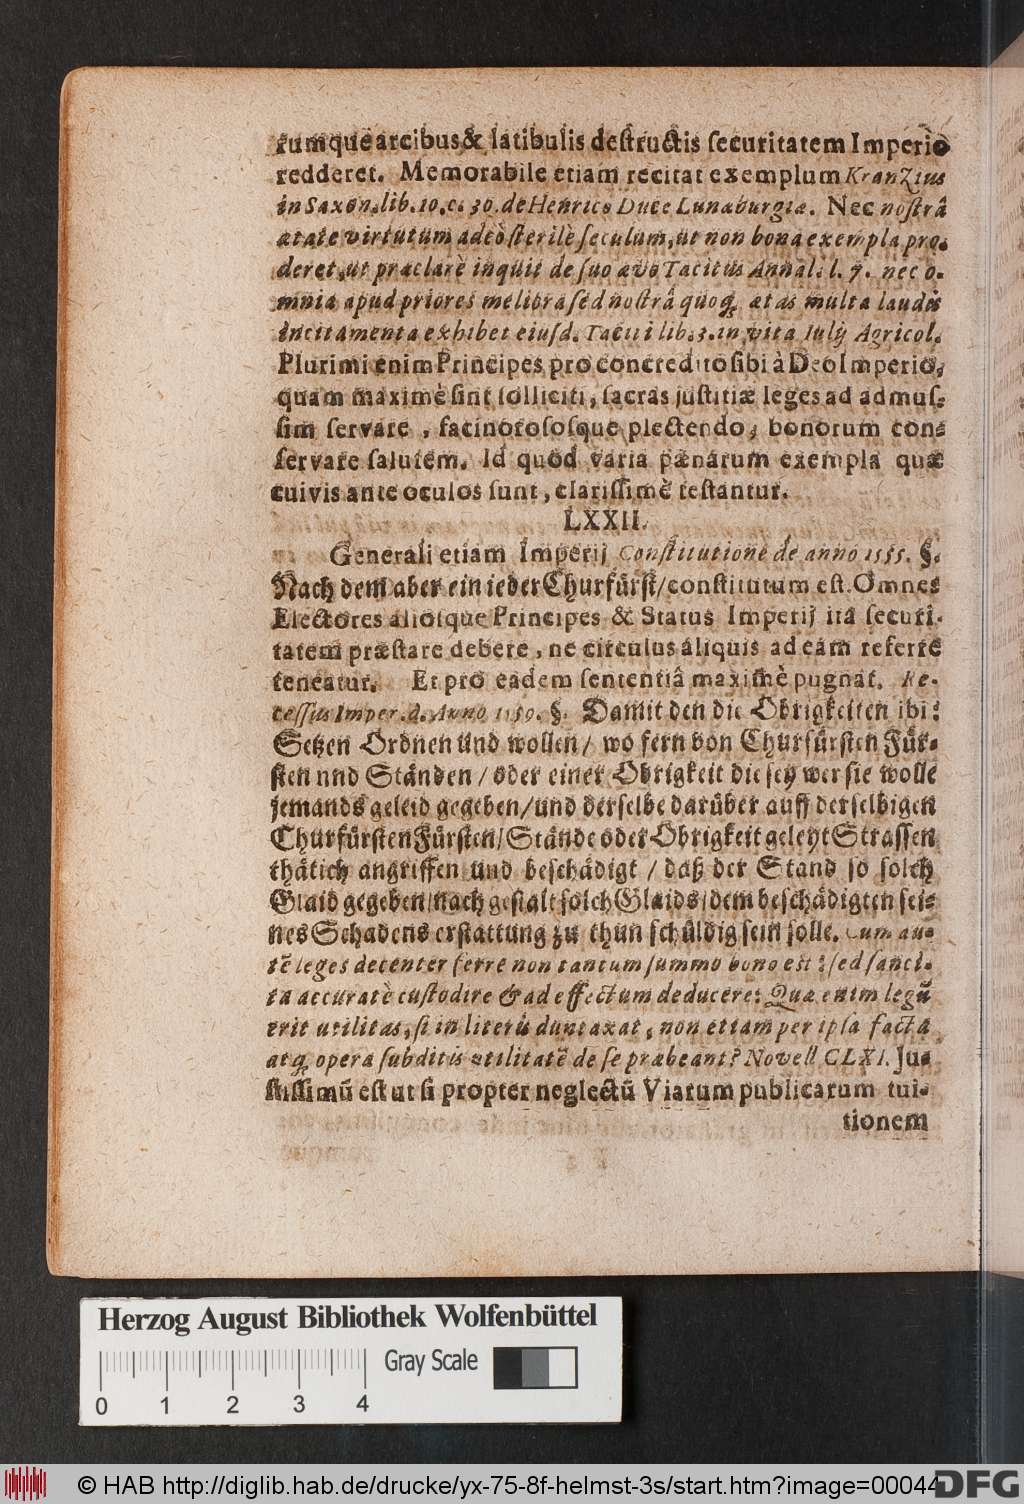 rumque arcibus & latibulis destructis securitatem Imperio
redderet. Memorabile etiam recitat exemplum Kranzius
in Saxon. lib. 10. c. 30. de Henrico Duce Lunæburgiæ. Nec nostrâ
ætate virtutum adeò sterilè seculum, ut non bona exempla pro-
deret, ut præclarè inquit de suo ævo Tacitus Annal. l. 7. nec o-
mnia apud priores meliora sed nostrâ quoq; ætas multa laudis
incitamenta exhibet eiusd. Taciti lib. 3. in vita Iulij Agricol.
Plurimi enim Principes pro concredito sibi à Deo Imperio,
quam maximè sint solliciti, sacras justitiæ leges ad admus-
sim servare, facinorososque plectendo, bonorum con-
servare salutem. Id quod varia pænarum exempla quæ
cuivis ante oculos sunt, clarissimè testantur.
LXXII.
Generali etiam Imperij Constitutione de anno 1555. §.
Nach dem aber ein ieder Churfürst/ constitutum est. Omnes
Electores aliosque Principes & Status Imperij itâ securi-
tatem præstare debere, ne circulus aliquis ad eam referre
teneatur. Et pro eadem sententiâ maximè pugnat. Re-
cessus Imper. d. Anno 1559. §. Damit den die Obrigkeiten ibi:
Setzen Ordnen und wollen/ wo fern von Churfürsten Für-
sten nnd Ständen / oder einer Obrigkeit die sey wer sie wolle
jemands geleid gegeben/ und derselbe darüber auff derselbigen
Churfürsten Fürsten/ Stände oder Obrigkeit geleyt Strassen
thätich angriffen und beschädigt / daß der Stand so solch
Glaid gegeben/ nach gestalt solch Glaids/ dem beschädigten sei-
nes Schadens erstattung zu thun schüldig sein solle. Cum au-
tē leges decenter ferre non tantum summo bono est: sed sanci-
ta accuratè custodire & ad effectum deducere: Quæ enim legū
erit utilitas, si in literis duntaxat, non etiam per ipsa facta
atq; opera subditis utilitatē de se præbeant? Novell CLXI. Ju-
stissimū est ut si propter neglectū Viarum publicarum tui-
tionem
Herzog August Bibliothek Wolfenbüttel
Gray Scale
0 1 2 3 4
© HAB http://diglib.hab.de/drucke/yx-75-8f-helmst-3s/start.htm?image=00044
DFG